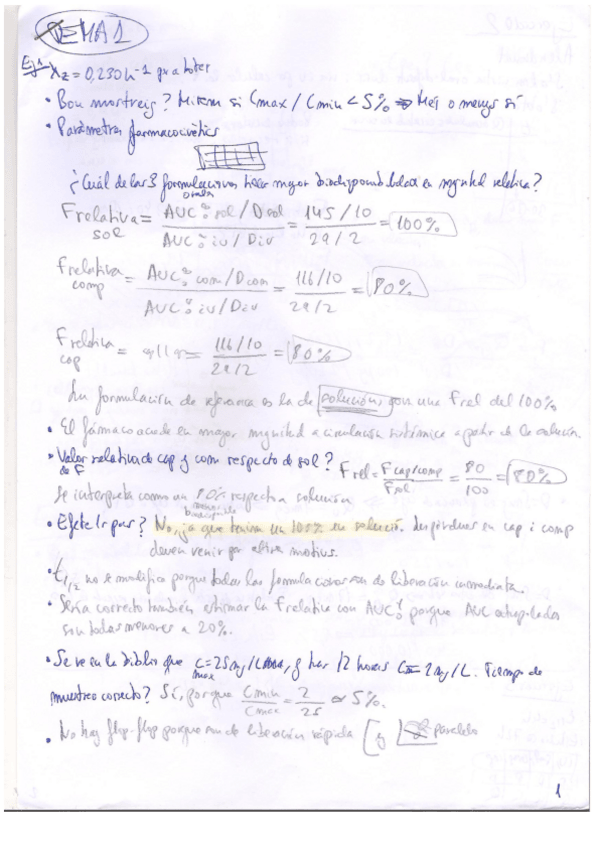 TEMA 1
Ej1 λz = 0,230 h⁻¹ per a totes
• Bon mostreig? Mirem si Cmax / Cmin < 5% => Més o menys sí
• Paràmetres farmacocinètics
¿Cuál de las 3 formulaciones orales tiene mayor biodisponibilidad en magnitud relativa?
Frelativa sol = AUC₀^∞ sol / D sol / AUC₀^∞ iv / Div = 145/10 / 29/2 = 100%
Frelativa comp = AUC₀^∞ com / Dcom / AUC₀^∞ iv / Div = 116/10 / 29/2 = 80%
Frelativa cap = = 116/10 / 29/2 = 80%
La formulación de referencia es la de solución, con una Frel del 100%
• El fármaco accede en mayor magnitud a circulación sistémica a partir de la solución.
• Valor relativo de F de cap y com respecto de sol? Frel = F cap/comp / Fsol = 80 / 100 = 80%
Se interpreta como un 80% respecto a solución
• Efecte 1r pas? No, ja que tenim un 100% en solució. Les pèrdues en cap i comp
deven venir per altres motius.
• t1/2 no se modifica porque todas las formulaciones son de liberación inmediata.
• Sería correcto también estimar la Frelativa con AUC₀^t porque AUC extrapoladas
son todas menores a 20%.
• Se ve en la biblio que Cmax = 25 mg/L, y has 12 hores C = 2 mg/L. Tiempo de
muestreo correcto? Sí, porque Cmin / Cmax = 2 / 25 ≈ 5%.
• No hay flip-flop porque son de liberación rápida y paralela
1